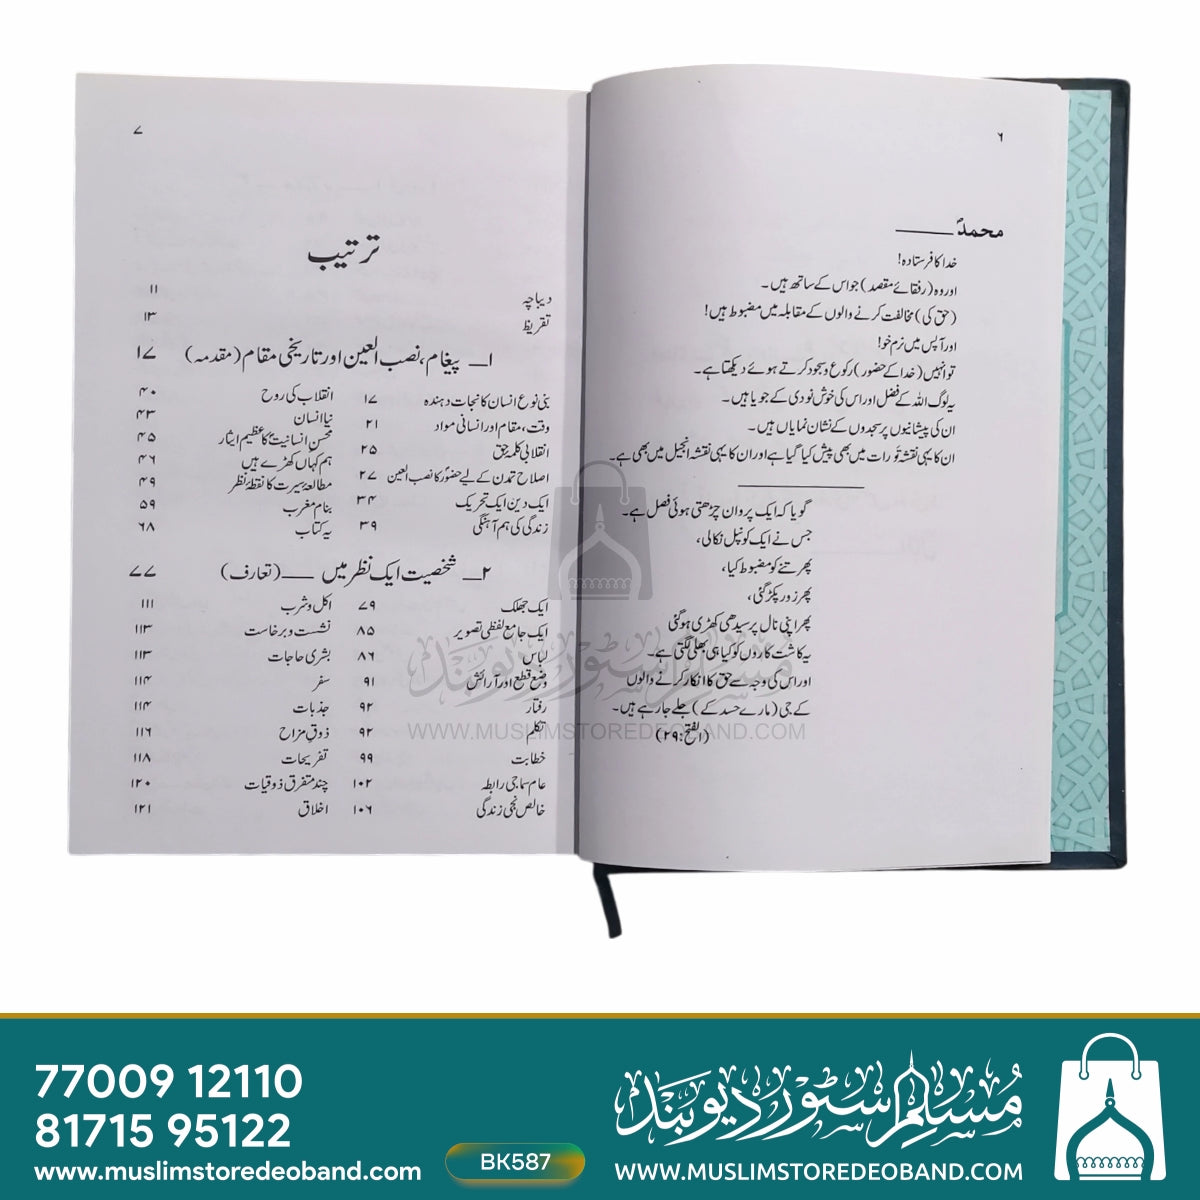 ۶
محمدؐ ـــــــ
خدا کا فرستادہ!
اور وہ (رفقائے مقصد) جو اس کے ساتھ ہیں۔
(حق کی) مخالفت کرنے والوں کے مقابلہ میں مضبوط ہیں!
اور آپس میں نرم خو!
تو انہیں (خدا کے حضور) رکوع و سجود کرتے ہوئے دیکھتا ہے۔
یہ لوگ اللہ کے فضل اور اس کی خوش نودی کے جویا ہیں۔
ان کی پیشانیوں پر سجدوں کے نشان نمایاں ہیں۔
ان کا یہی نقشہ تورات میں بھی پیش کیا گیا ہے اور ان کا یہی نقشہ انجیل میں بھی ہے۔
گویا کہ ایک پروان چڑھتی ہوئی فصل ہے۔
جس نے ایک کونپل نکالی،
پھر تنے کو مضبوط کیا،
پھر زور پکڑ گئی،
پھر اپنی نال پر سیدھی کھڑی ہو گئی
یہ کاشت کاروں کو کیا ہی بھلی لگتی ہے۔
اور اس کی وجہ سے حق کا انکار کرنے والوں
کے جی (مارے حسد کے) جلے جا رہے ہیں۔
(الفتح: ۲۹)
۷
ترتیب
دیباچہ ۱۱
تقریظ ۱۳
۱ـ پیغام، نصب العین اور تاریخی مقام (مقدمہ) ۱۷
بنی نوع انسان کا نجات دہندہ ۱۷ انقلاب کی روح ۴۰
وقت، مقام اور انسانی مواد ۲۱ نیا انسان ۴۳
انقلابی کلمۂ حق ۲۵ محسن انسانیتؐ کا عظیم ایثار ۴۵
اصلاح تمدن کے لیے حضورؐ کا نصب العین ۲۷ ہم کہاں کھڑے ہیں ۴۶
ایک دین ایک تحریک ۳۴ مطالعۂ سیرت کا نقطۂ نظر ۴۹
زندگی کی ہم آہنگی ۳۹ بنام مغرب ۵۹
یہ کتاب ۶۸
۲ـ شخصیت ایک نظر میں ـــ (تعارف) ۷۷
ایک جھلک ۷۹ اکل و شرب ۱۱۱
ایک جامع لفظی تصویر ۸۵ نشست و برخاست ۱۱۳
لباس ۸۶ بشری حاجات ۱۱۳
وضع قطع اور آرائش ۹۱ سفر ۱۱۴
رفتار ۹۲ جذبات ۱۱۴
تکلم ۹۲ ذوق مزاح ۱۱۶
خطابت ۹۹ تفریحات ۱۱۸
عام سماجی رابطہ ۱۰۲ چند متفرق ذوقیات ۱۲۰
خالص نجی زندگی ۱۰۶ اخلاق ۱۲۱
مسلم سٹور دیوبند
WWW.MUSLIMSTOREDEOBAND.COM
77009 12110
81715 95122
www.muslimstoredeoband.com
BK587
مسلم سٹور دیوبند
WWW.MUSLIMSTOREDEOBAND.COM